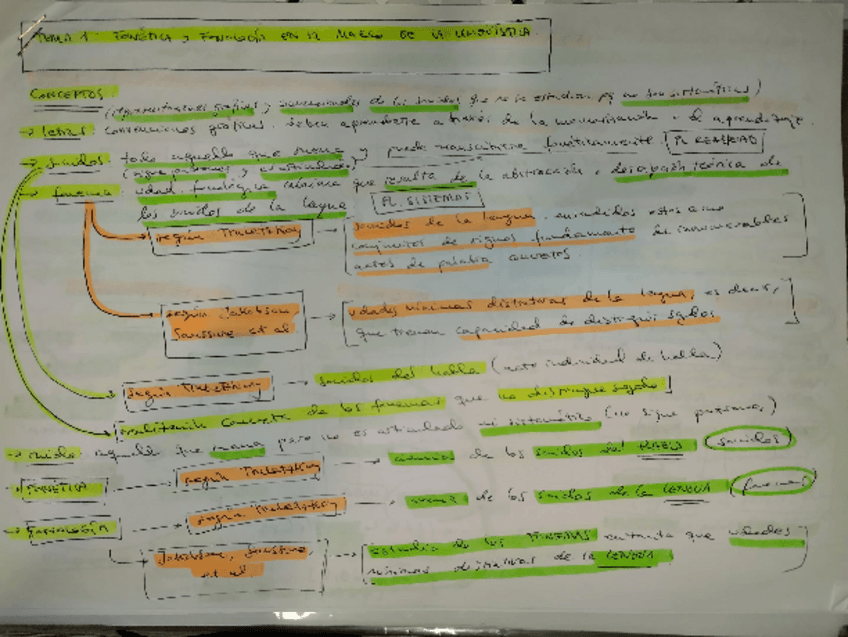 TEMA 1: FONÉTICA y FONOLOGÍA EN EL MARCO DE LA LINGÜÍSTICA.
CONCEPTOS
(representaciones gráficas y convencionales de los sonidos que no se estudian pq no son sistemáticas)
→ letras: convenciones gráficas. Deben aprenderse a través de la memorización y el aprendizaje.
→ sonidos: todo aquello que suena y puede transcribirse fonéticamente. EL REALIDAD
(sigue patrones y es articulado)
→ fonema: udad. fonológica mínima que resulta de la abstracción y descripción teórica de
los sonidos de la lengua EL SISTEMAS
según Trubetzkoy → sonidos de la lengua, entendidos estos como
conjuntos de signos fónicamente de innumerables
actos de palabra concretos.
según Jakobson, → udades mínimas distintivas de la lengua, es decir,
Saussure et al. que tienen capacidad de distinguir sgdos
según Trubetzkoy → sonidos del habla (acto individual de habla)
realización concreta de los fonemas que no distingue sgdo
→ ruido: aquello que suena pero no es articulado ni sistemático (no sigue patrones)
→ FONÉTICA → según Trubetzkoy → ciencia de los sonidos del HABLA (sonidos)
→ FONOLOGÍA → según Trubetzkoy → ciencia de los sonidos de la LENGUA (fonemas)
Jakobson, Saussure, → estudio de los FONEMAS en tanto que udades
et al. mínimas distintivas de la LENGUA